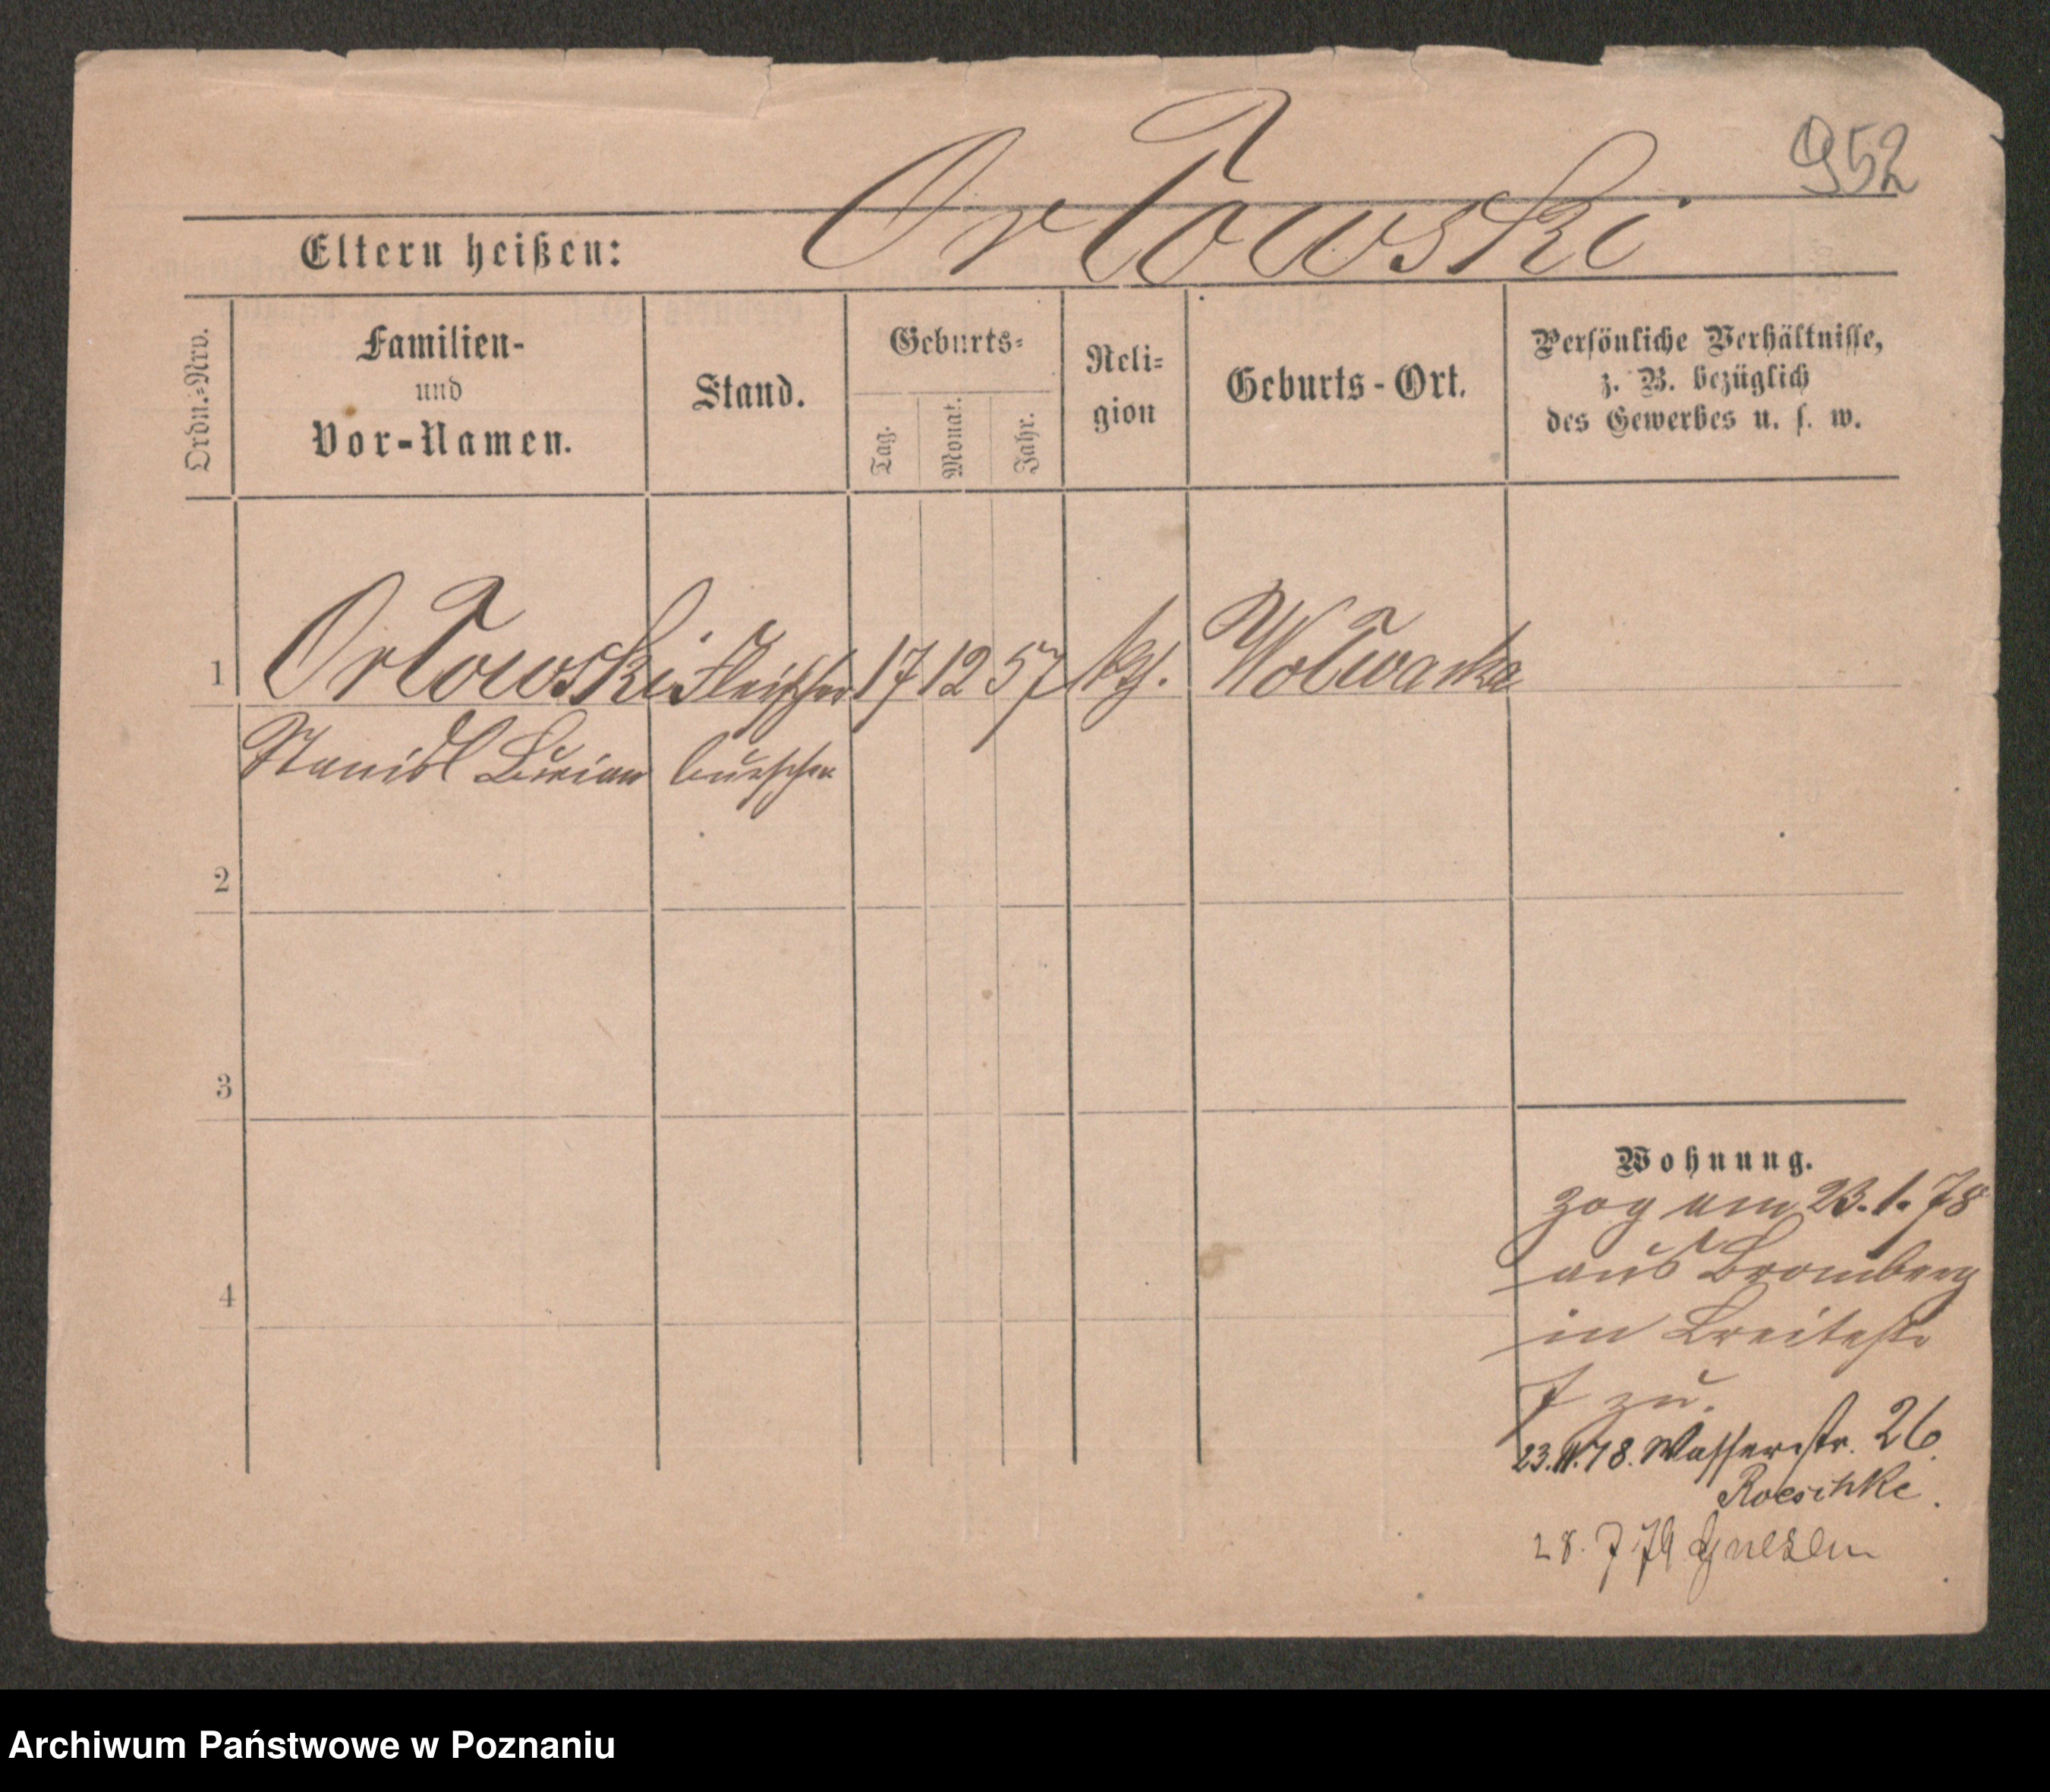 952
Orłowski
Eltern heißen:
Ordn.-Nro.
Familien-
und
Vor-Namen.
Stand.
Geburts-
Tag.
Monat.
Jahr.
Reli-
gion
Geburts-Ort.
Persönliche Verhältnisse,
z. B. bezüglich
des Gewerbes u. s. w.
1 Orłowski Fleischer 17 12 57 kh.
Stanisl burschen
2
3
4
Wohnung.
zog am 23.1.78
aus Bromberg
in Breitestr
7 zu.
23.11.78. Wasserstr. 26.
Roeschke.
28. 7 79 Gnesen
Archiwum Państwowe w Poznaniu